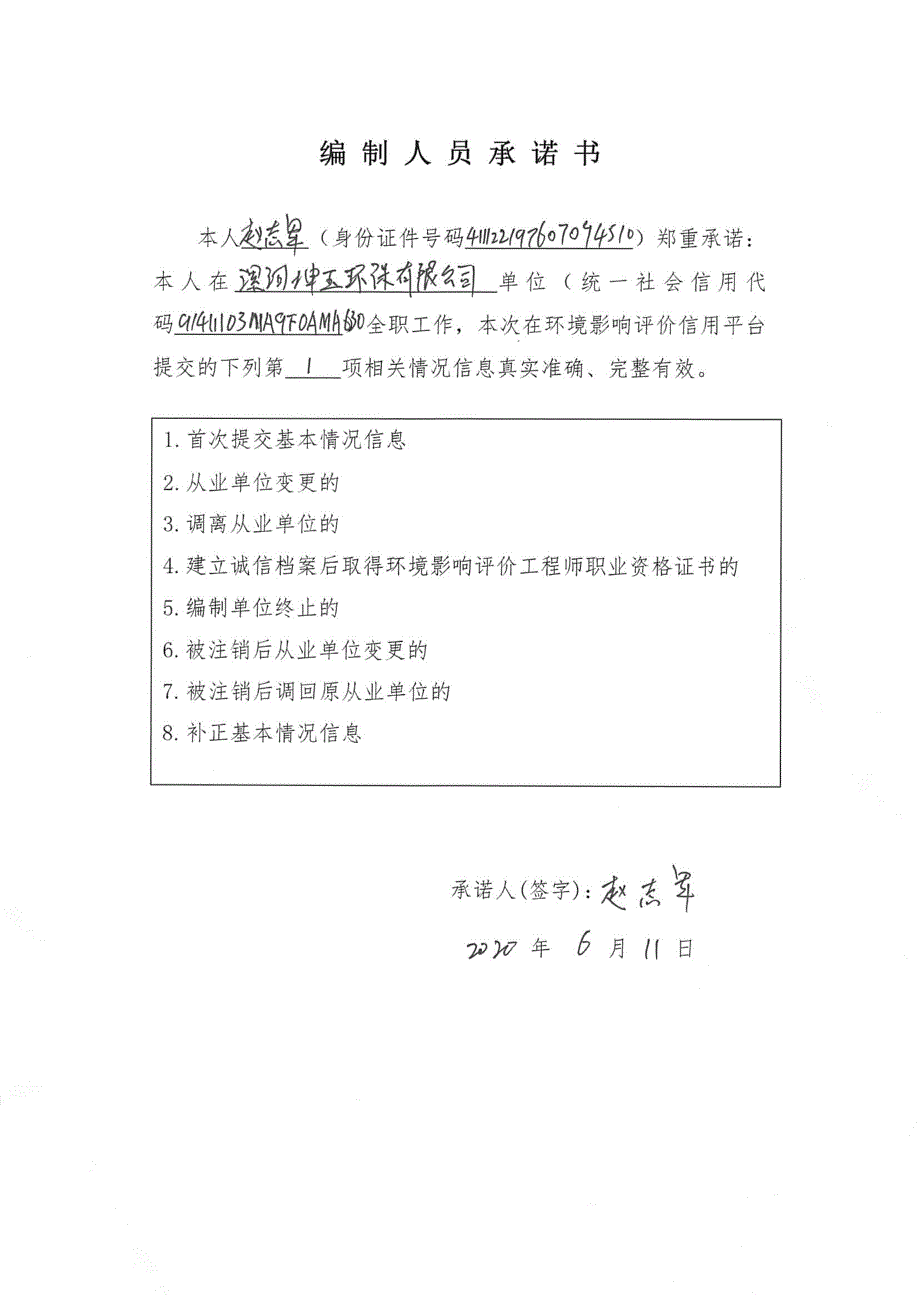 编制人员承诺书
本人赵志军（身份证件号码411122197607094510）郑重承诺：
本人在漯河坤玉环保有限公司单位（统一社会信用代
码91411103MA9F0AMA630全职工作，本次在环境影响评价信用平台
提交的下列第1项相关情况信息真实准确、完整有效。
1.首次提交基本情况信息
2.从业单位变更的
3.调离从业单位的
4.建立诚信档案后取得环境影响评价工程师职业资格证书的
5.编制单位终止的
6.被注销后从业单位变更的
7.被注销后调回原从业单位的
8.补正基本情况信息
承诺人(签字)：赵志军
2020年6月11日